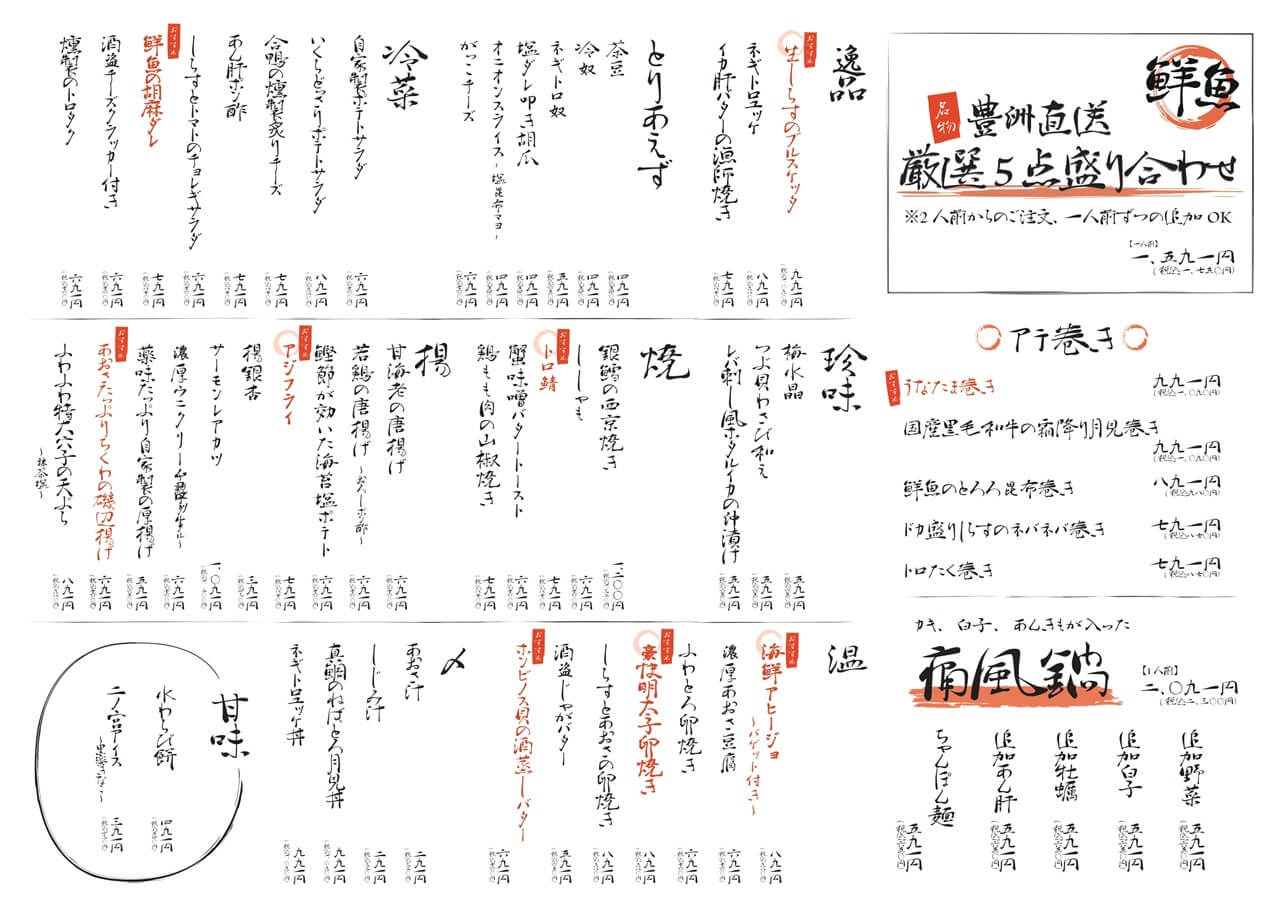 鮮魚
名物
豊洲直送
厳選5点盛り合わせ
※2人前からのご注文、一人前ずつの追加OK
【一人前】
一、五九一円
（税込一、七五〇円）
アテ巻き
おすすめ
うなたま巻き
九九一円
（税込一、〇九〇円）
国産黒毛和牛の霜降り月見巻き
九九一円
（税込一、〇九〇円）
鮮魚のとろろ昆布巻き
八九一円
（税込九八〇円）
ドカ盛りしらすのネバネバ巻き
七九一円
（税込八七〇円）
トロたく巻き
七九一円
（税込八七〇円）
カキ、白子、あんきもが入った
痛風鍋
【1人前】
二、〇九一円
（税込二、三〇〇円）
追加野菜
五九一円
（税込六五〇円）
追加白子
五九一円
（税込六五〇円）
追加牡蠣
五九一円
（税込六五〇円）
追加あん肝
五九一円
（税込六五〇円）
ちゃんぽん麺
五九一円
（税込六五〇円）
逸品
おすすめ
生しらすのブルスケッタ
九九一円
ネギトロユッケ
八九一円
イカ肝バターの漁師焼き
七九一円
とりあえず
茶豆
四九一円
冷奴
四九一円
ネギトロ奴
五九一円
塩ダレ叩き胡瓜
四九一円
オニオンスライス〜塩昆布マヨ〜
四九一円
がっこチーズ
六九一円
冷菜
自家製ポテトサラダ
六九一円
いくらどっさりポテトサラダ
八九一円
合鴨の燻製炙りチーズ
七九一円
あん肝ポン酢
七九一円
しらすとトマトのチョレギサラダ
六九一円
おすすめ
鮮魚の胡麻ダレ
七九一円
酒盗チーズクラッカー付き
六九一円
燻製のトロタク
六九一円
珍味
梅水晶
五九一円
つぶ貝わさび和え
五九一円
レバ刺し風ホタルイカの沖漬け
五九一円
焼
銀鱈の西京焼き
一、二〇〇円
ししゃも
六九一円
おすすめ
トロ鯖
七九一円
蟹味噌バタートースト
六九一円
鶏もも肉の山椒焼き
七九一円
揚
甘海老の唐揚げ
六九一円
若鶏の唐揚げ〜おろしポン酢〜
六九一円
鰹節が効いた海苔塩ポテト
六九一円
おすすめ
アジフライ
七九一円
揚銀杏
三九一円
サーモンレアカツ
一、〇九一円
濃厚ウニクリーム
六九一円
薬味たっぷり自家製の厚揚げ
五九一円
おすすめ
あおさたっぷりちくわの磯辺揚げ
六九一円
ふわふわ特大穴子の天ぷら
〜抹茶塩〜
八九一円
温
おすすめ
海鮮アヒージョ
〜バゲット付き〜
八九一円
濃厚あおさ豆腐
六九一円
ふわとろ卵焼き
六九一円
おすすめ
豪快明太子卵焼き
八九一円
しらすとあおさの卵焼き
八九一円
酒盗じゃがバター
五九一円
おすすめ
ホンビノス貝の酒蒸しバター
六九一円
〆
あおさ汁
二九一円
しじみ汁
二九一円
真鯛のねばとろ月見丼
九九一円
ネギトロユッケ丼
九九一円
甘味
水わらび餅
四九一円
二ノ宮アイス
三九一円